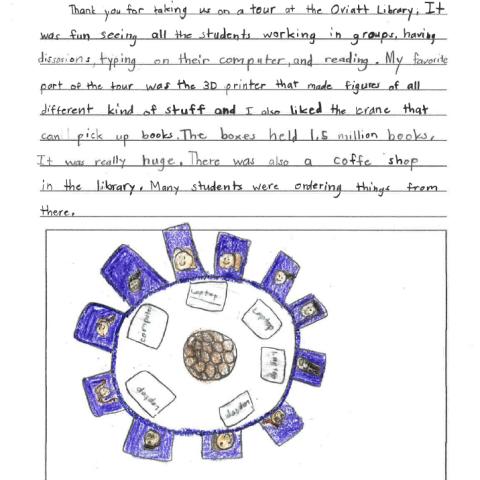 Thank you for taking us on a tour at the Oviatt Library. It
was fun seeing all the students working in groups, having
dissosions, typing on their computer, and reading. My favorite
part of the tour was the 3D printer that made figures of all
different kind of stuff and I also liked the crane that
can pick up books. The boxes held 1.5 million books.
It was really huge. There was also a coffe shop
in the library. Many students were ordering things from
there.
Laptop
computer
Laptop
Laptop
Laptop
Laptop